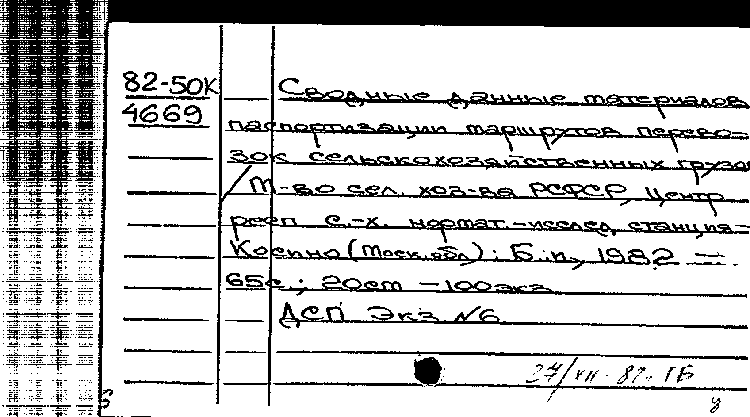 82-50К
4669
Сводные данные материалов
паспортизации маршрутов перево-
зок сельскохозяйственных грузо
/ М-во сел. хоз-ва РСФСР, Центр
респ с.-х. нормат.-исслед. станция-
Косино (Моск. обл): Б.и., 1982 —
65с; 20см - 100экз
ДСП Экз №6
27/VII-82. ГБ